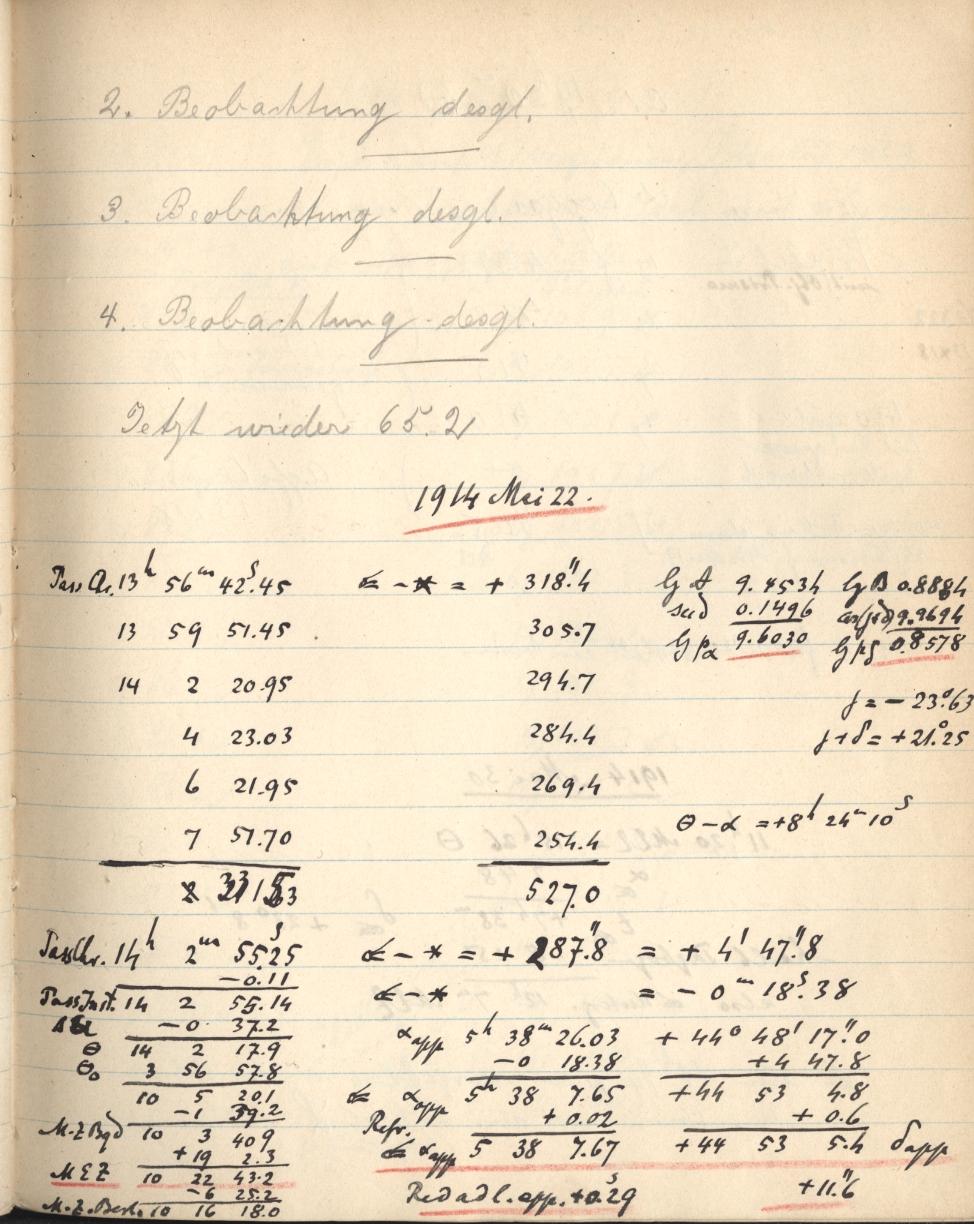 2. Beobachtung desgl.
3. Beobachtung desgl.
4. Beobachtung desgl.
Jetzt wieder 65.2
1914 Mai 22.
13ʰ 56ᵐ 42ˢ.45 ☄ - * = + 318".4 lg A 9.4534 lg B 0.8884
13 59 51.45 305.7 secδ 0.1496 9.9694
14 2 20.95 294.7 lg pα 9.6030 lg pδ 0.8578
4 23.03 284.4 γ = - 23°.63
6 21.95 269.4 γ+δ = + 21°.25
7 51.70 254.4 θ-α = +8ʰ 24ᵐ 10ˢ
527.0
14ʰ 2ᵐ 55ˢ.25 ☄ - * = + 287".8 = + 4' 47".8
-0.11
Pass Inst. 14 2 55.14 ☄ - * = - 0ᵐ 18ˢ.38
-0 37.2
θ 14 2 17.9 αapp 5ʰ 38ᵐ 26.03 + 44° 48' 17".0
θ₀ 3 56 57.8 -0 18.38 +4 47.8
10 5 20.1 ☄ αapp 5ʰ 38 7.65 +44 53 4.8
-1 39.2 Refr. + 0.02 + 0.6
M.Z.Bgd 10 3 40.9 ☄ αapp 5 38 7.67 +44 53 5.4 δapp
+19 2.3
MEZ 10 22 43.2
-6 25.2 Red ad l. app. +0ˢ.29 +11".6
M.Z.Berl. 10 16 18.0